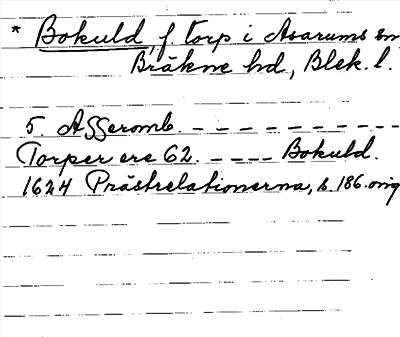 * Bokuld, f. torp i Asarums sn
Bräkne hd, Blek. l.
5. Aggeromb. - - - - - - - - - - -
Torper ere 62. - - - - Bokuld.
1624 Prästrelationerna, s. 186. orig